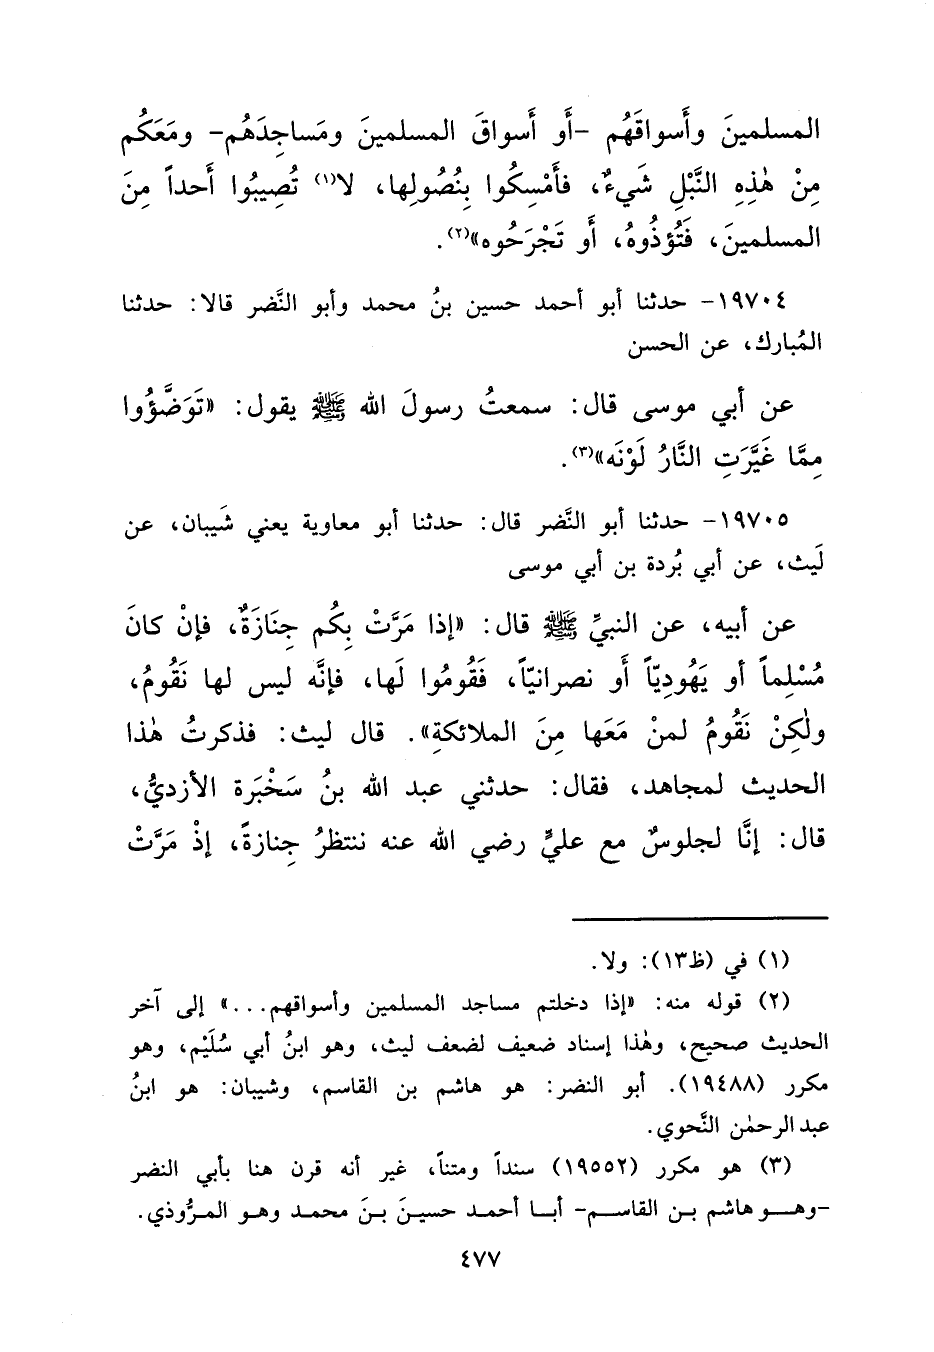 المسلمينَ وأَسواقَهُم -أَو أَسواقَ المسلمينَ ومَساجِدَهُم- ومَعَكُم
مِنْ هٰذِهِ النَّبْلِ شَيءٌ، فأَمْسِكُوا بِنُصُولِها، لا(١) تُصِيبُوا أَحداً مِنَ
المسلمينَ، فَتُؤذُوهُ، أَو تَجْرَحُوه»(٢).
١٩٧٠٤- حدثنا أبو أحمد حسين بنُ محمد وأبو النَّضر قالا: حدثنا
المُبارك، عن الحسن
عن أبي موسى قال: سمعتُ رسولَ الله ﷺ يقول: «تَوَضَّؤُوا
مِمَّا غَيَّرَتِ النَّارُ لَوْنَه»(٣).
١٩٧٠٥- حدثنا أبو النَّضر قال: حدثنا أبو معاوية يعني شَيبان، عن
لَيث، عن أبي بُردة بن أبي موسى
عن أبيه، عن النبيِّ ﷺ قال: «إذا مَرَّتْ بِكُم جِنَازَةٌ، فإنْ كانَ
مُسْلِماً أو يَهُودِيّاً أَو نصرانيّاً، فَقُومُوا لَها، فإنَّه ليس لها نَقُومُ،
ولٰكِنْ نَقُومُ لمنْ مَعَها مِنَ الملائكةِ». قال ليث: فذكرتُ هٰذا
الحديث لمجاهد، فقال: حدثني عبد الله بنُ سَخْبَرة الأزديُّ،
قال: إنَّا لجلوسٌ مع عليٍّ رضي الله عنه ننتظرُ جِنازةً، إذْ مَرَّتْ
(١) في (ظ١٣): ولا.
(٢) قوله منه: «إذا دخلتم مساجد المسلمين وأسواقهم...» إلى آخر
الحديث صحيح، وهٰذا إسناد ضعيف لضعف ليث، وهو ابنُ أبي سُلَيْم، وهو
مكرر (١٩٤٨٨). أبو النضر: هو هاشم بن القاسم، وشيبان: هو ابنُ
عبد الرحمٰن النَّحوي.
(٣) هو مكرر (١٩٥٥٢) سنداً ومتناً، غير أنه قرن هنا بأبي النضر
-وهـو هاشم بـن القاسـم- أبـا أحمـد حسيـنَ بـنَ محمـد وهـو المـرُّوذي.
٤٧٧